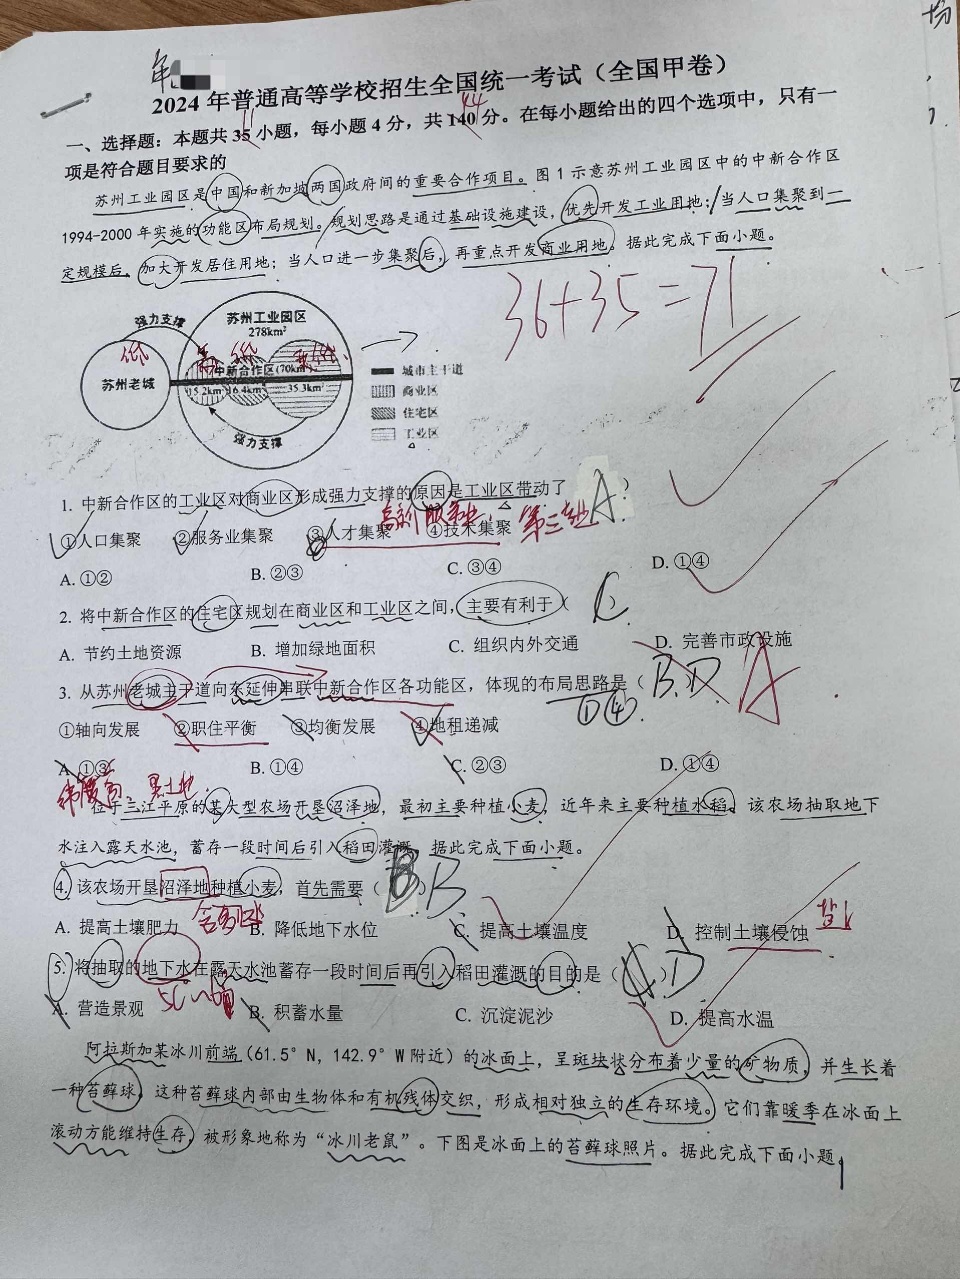 2024年普通高等学校招生全国统一考试（全国甲卷）
一、选择题：本题共35小题，每小题4分，共140分。在每小题给出的四个选项中，只有一
项是符合题目要求的
44
苏州工业园区是中国和新加坡两国政府间的重要合作项目。图1示意苏州工业园区中的中新合作区
1994-2000年实施的功能区布局规划。规划思路是通过基础设施建设，优先开发工业用地；当人口集聚到一
定规模后，加大开发居住用地；当人口进一步集聚后，再重点开发商业用地。据此完成下面小题。
36+35=71
强力支撑
苏州工业园区
278km²
低
苏州老城
中新合作区(70km²)
15.2km²
16.4km²
35.3km²
强力支撑
城市主干道
商业区
住宅区
工业区
1. 中新合作区的工业区对商业区形成强力支撑的原因是工业区带动了（A）
①人口集聚 ②服务业集聚 ③人才集聚 ④技术集聚
A. ①② B. ②③ C. ③④ D. ①④
2. 将中新合作区的住宅区规划在商业区和工业区之间，主要有利于（C）
A. 节约土地资源 B. 增加绿地面积 C. 组织内外交通 D. 完善市政设施
3. 从苏州老城主干道向东延伸串联中新合作区各功能区，体现的布局思路是（B D A
①④
①轴向发展 ②职住平衡 ③均衡发展 ④地租递减
A. ①③ B. ①④ C. ②③ D. ①④
纬度高、黑土地
位于三江平原的某大型农场开垦沼泽地，最初主要种植小麦，近年来主要种植水稻。该农场抽取地下
水注入露天水池，蓄存一段时间后引入稻田灌溉。据此完成下面小题。
4. 该农场开垦沼泽地种植小麦，首先需要（B）B
A. 提高土壤肥力 B. 降低地下水位 C. 提高土壤温度 D. 控制土壤侵蚀
5. 将抽取的地下水在露天水池蓄存一段时间后再引入稻田灌溉的目的是（ ）D
A. 营造景观 B. 积蓄水量 C. 沉淀泥沙 D. 提高水温
阿拉斯加某冰川前端(61.5°N，142.9°W附近）的冰面上，呈斑块状分布着少量的矿物质，并生长着
一种苔藓球。这种苔藓球内部由生物体和有机残体交织，形成相对独立的生存环境。它们靠暖季在冰面上
滚动方能维持生存，被形象地称为“冰川老鼠”。下图是冰面上的苔藓球照片。据此完成下面小题。